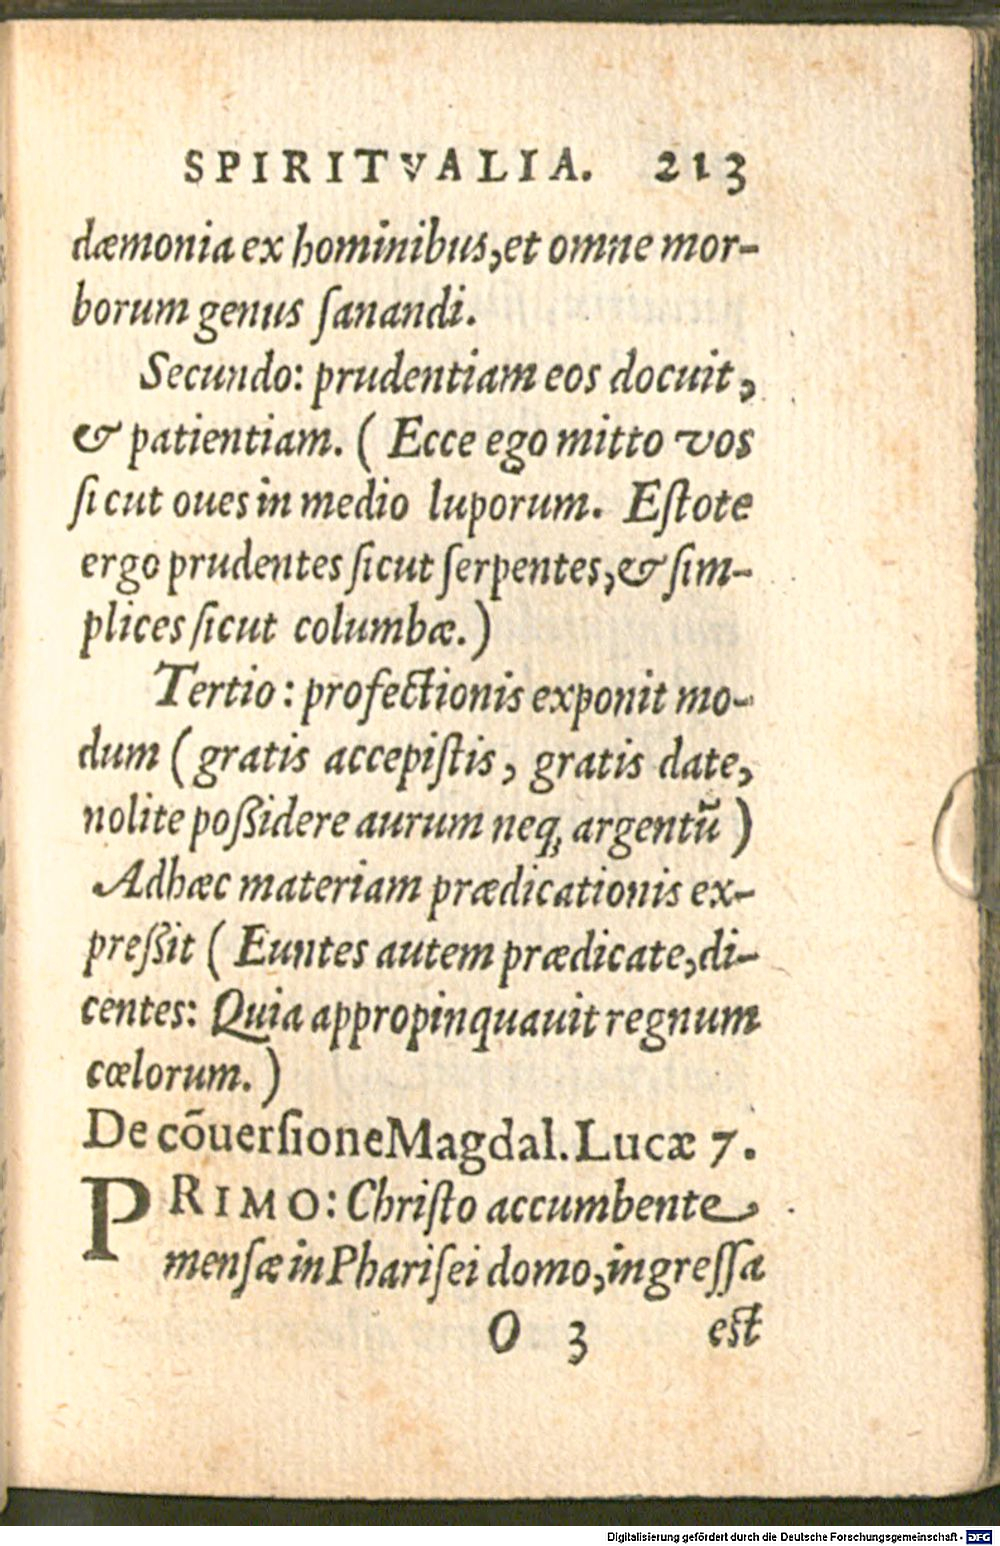 SPIRITVALIA. 213
dæmonia ex hominibus, et omne mor-
borum genus ſanandi.
Secundo: prudentiam eos docuit,
& patientiam. ( Ecce ego mitto vos
ſicut oues in medio luporum. Eſtote
ergo prudentes ſicut ſerpentes, & ſim-
plices ſicut columbæ.)
Tertio: profectionis exponit mo-
dum ( gratis accepiſtis, gratis date,
nolite poſsidere aurum neq; argentū )
Adhæc materiam prædicationis ex-
preſsit ( Euntes autem prædicate, di-
centes: Quia appropinquauit regnum
cœlorum.)
De cōuerſione Magdal. Lucæ 7.
PRIMO: Chriſto accumbente
menſæ in Phariſei domo, ingreſſa
O 3 eſt
Digitalisierung gefördert durch die Deutsche Forschungsgemeinschaft - DFG